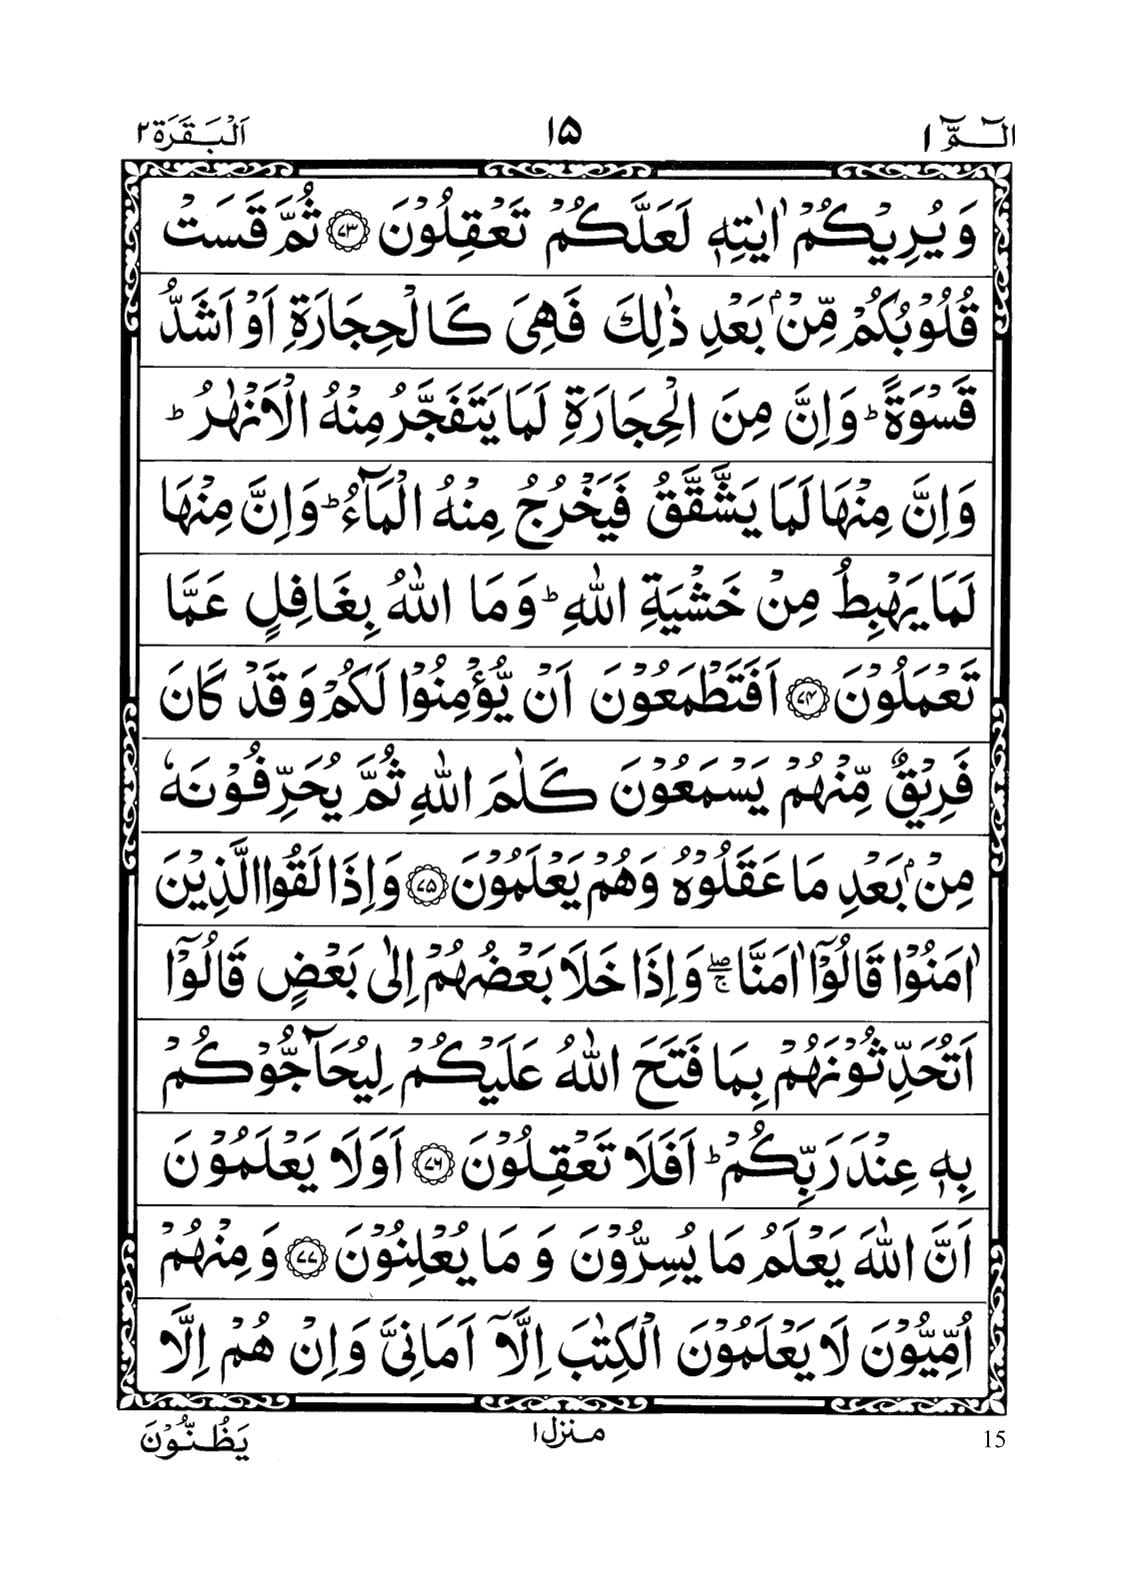 الٓمّٓ ١
١٥
اَلْبَقَرَة ٢
وَيُرِيْكُمْ اٰيٰتِهٖ لَعَلَّكُمْ تَعْقِلُوْنَ ﴿٧٣﴾ ثُمَّ قَسَتْ
قُلُوْبُكُمْ مِّنْۢ بَعْدِ ذٰلِكَ فَهِىَ كَالْحِجَارَةِ اَوْ اَشَدُّ
قَسْوَةً ؕ وَاِنَّ مِنَ الْحِجَارَةِ لَمَا يَتَفَجَّرُ مِنْهُ الْاَنْهٰرُ ؕ
وَاِنَّ مِنْهَا لَمَا يَشَّقَّقُ فَيَخْرُجُ مِنْهُ الْمَآءُ ؕ وَاِنَّ مِنْهَا
لَمَا يَهْبِطُ مِنْ خَشْيَةِ اللّٰهِ ؕ وَمَا اللّٰهُ بِغَافِلٍ عَمَّا
تَعْمَلُوْنَ ﴿٧٤﴾ اَفَتَطْمَعُوْنَ اَنْ يُّؤْمِنُوْا لَكُمْ وَقَدْ كَانَ
فَرِيْقٌ مِّنْهُمْ يَسْمَعُوْنَ كَلٰمَ اللّٰهِ ثُمَّ يُحَرِّفُوْنَهٗ
مِنْۢ بَعْدِ مَا عَقَلُوْهُ وَهُمْ يَعْلَمُوْنَ ﴿٧٥﴾ وَاِذَا لَقُوا الَّذِيْنَ
اٰمَنُوْا قَالُوْٓا اٰمَنَّا ۖۚ وَاِذَا خَلَا بَعْضُهُمْ اِلٰى بَعْضٍ قَالُوْٓا
اَتُحَدِّثُوْنَهُمْ بِمَا فَتَحَ اللّٰهُ عَلَيْكُمْ لِيُحَآجُّوْكُمْ
بِهٖ عِنْدَ رَبِّكُمْ ؕ اَفَلَا تَعْقِلُوْنَ ﴿٧٦﴾ اَوَلَا يَعْلَمُوْنَ
اَنَّ اللّٰهَ يَعْلَمُ مَا يُسِرُّوْنَ وَمَا يُعْلِنُوْنَ ﴿٧٧﴾ وَمِنْهُمْ
اُمِّيُّوْنَ لَا يَعْلَمُوْنَ الْكِتٰبَ اِلَّآ اَمَانِىَّ وَاِنْ هُمْ اِلَّا
يَظُنُّوْنَ
منزل ١
15